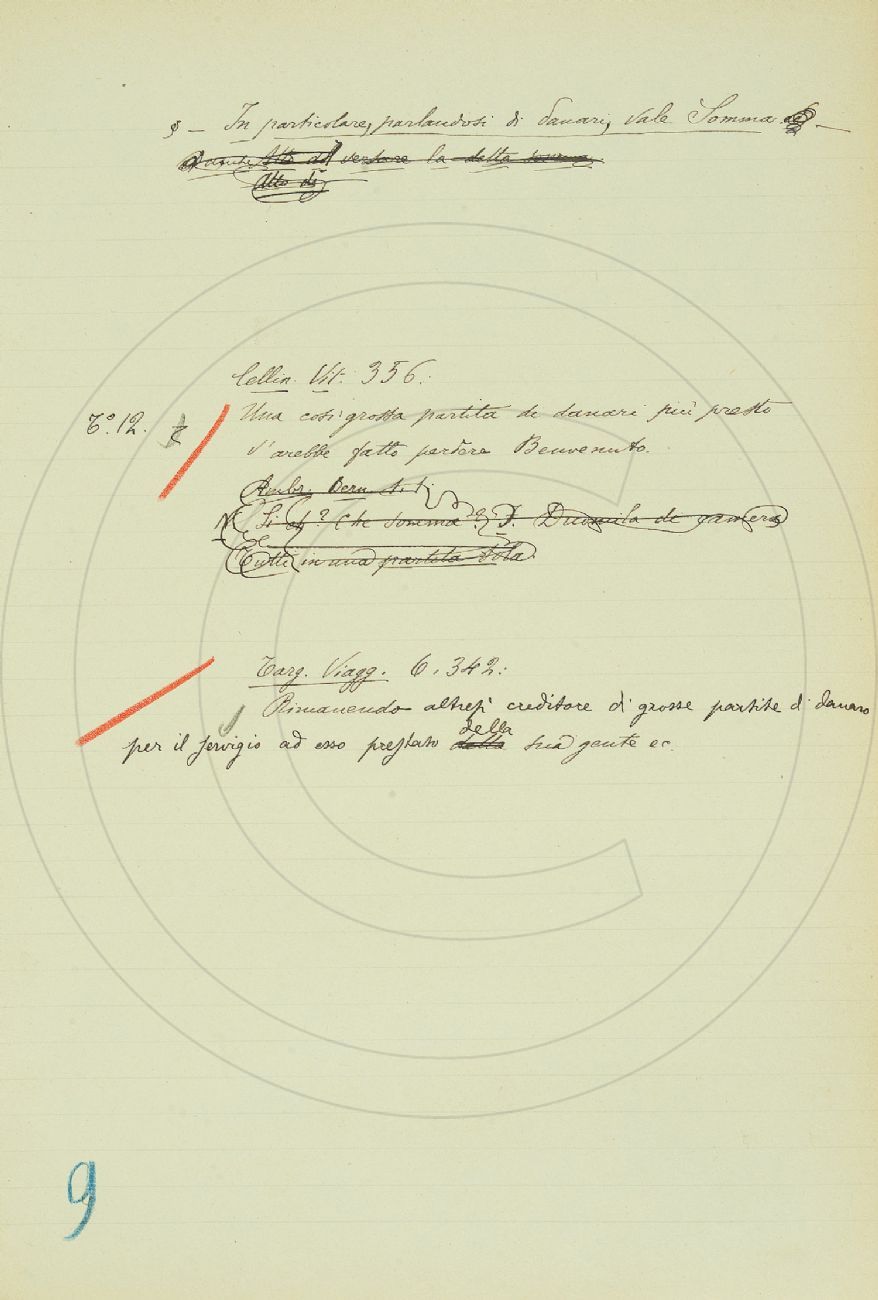 § — In particolare, parlandosi di danari, vale Somma. —
versare la detta somma
Atto di
Cellin. Vit. 356:
T.º 12. Una così grossa partita di danari più presto
l'arebbe fatto perdere Benvenuto.
Ambr. Bern.
Che somma? F. Dumila di camera
Tutti in una partita sola.
Targ. Viagg. 6. 342:
Rimanendo altresì creditore di grosse partite di danaro
della
per il servigio ad esso prestato dalla sua gente ec.
9